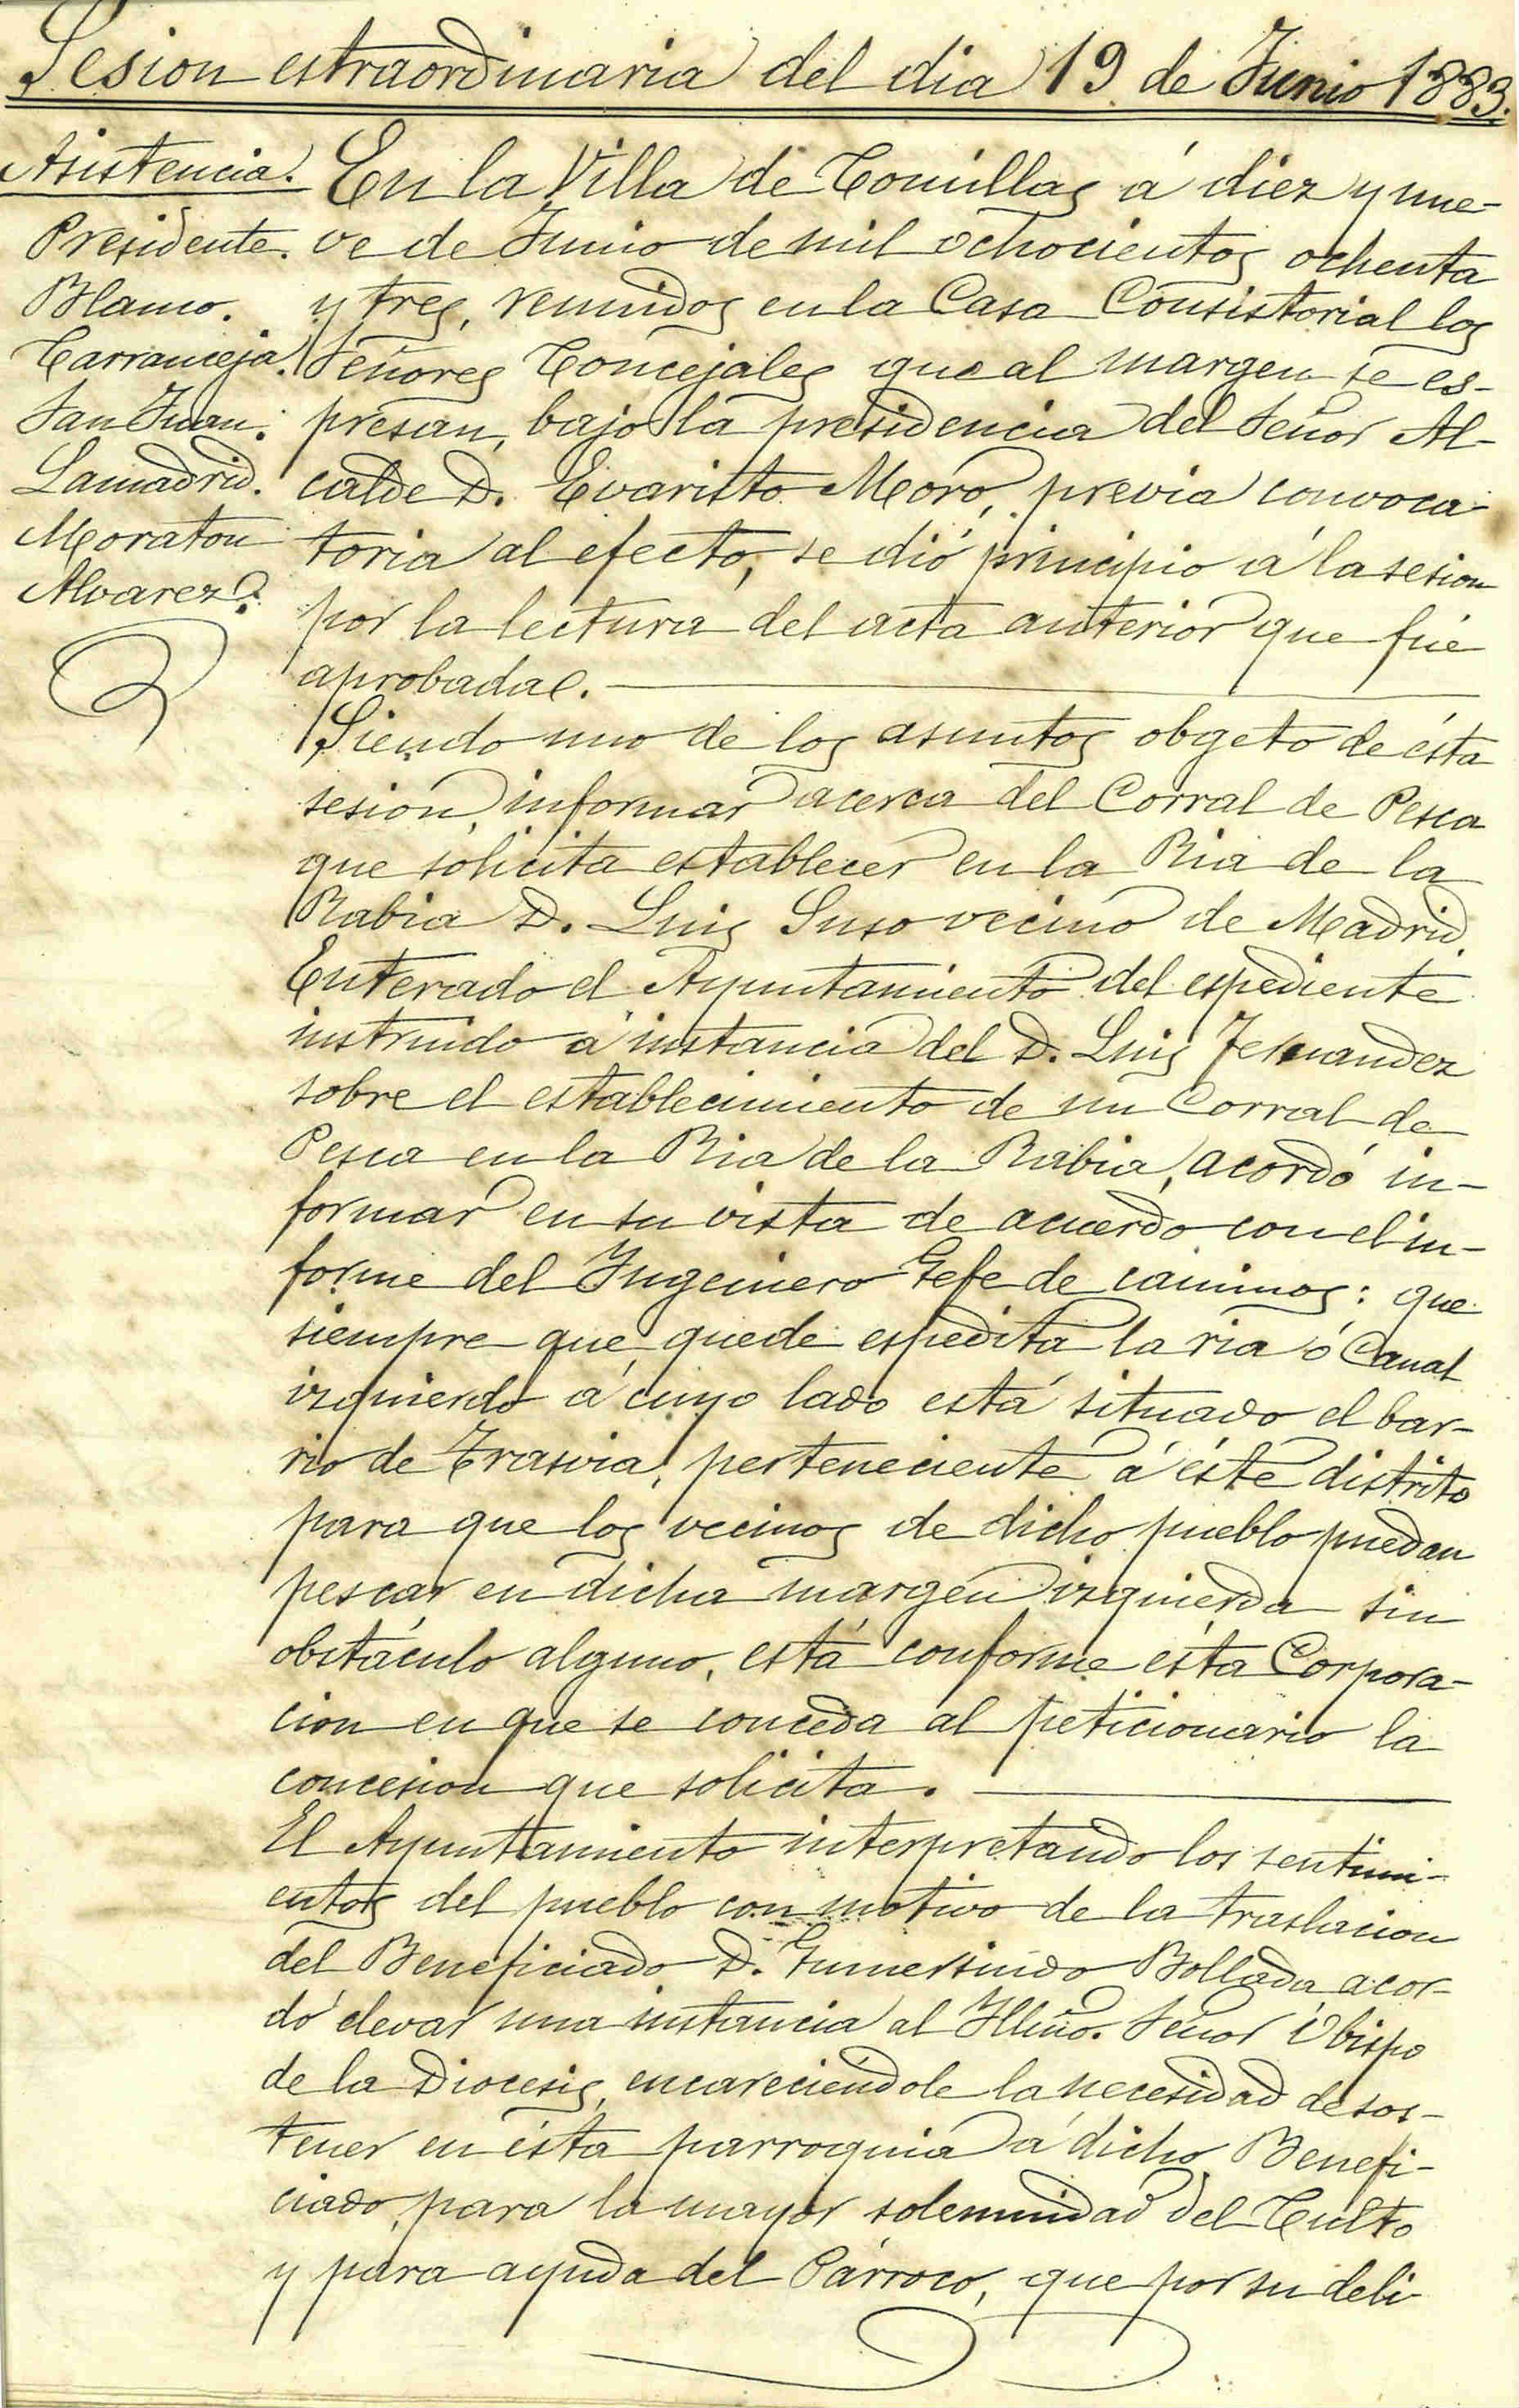 Sesion estraordinaria del dia 19 de Junio 1883.
Asistencia.
Presidente.
Blanco.
Carranceja.
San Juan.
Lamadrid.
Moraton
Alvarez.
En la Villa de Comillas á diez y nue-
ve de Junio de mil ochocientos ochenta
y tres, reunidos en la Casa Consistorial los
Señores Concejales que al margen se es-
presan, bajo la presidencia del Señor Al-
calde D. Evaristo Moro, previa convoca-
toria al efecto, se dió principio á la sesion
por la lectura del acta anterior que fué
aprobada.
Siendo uno de los asuntos obgeto de ésta
sesion, informar acerca del Corral de Pesca
que solicita establecer en la Ria de la
Rabia D. Luis Suso vecino de Madrid.
Enterado el Ayuntamiento del espediente
instruido á instancia del D. Luis Fernandez
sobre el establecimiento de un Corral de
Pesca en la Ria de la Rabia, acordó in-
formar en su vista de acuerdo con el in-
forme del Ingeniero Gefe de caminos: que
siempre que quede espedita la ria ó Canal
izquierdo á cuyo lado está situado el bar-
rio de Trasvia, perteneciente á éste distrito
para que los vecinos de dicho pueblo puedan
pescar en dicha margen izquierda sin
obstáculo alguno, está conforme ésta Corpora-
cion en que se conceda al peticionario la
concesion que solicita.
El Ayuntamiento interpretando los sentimi-
entos del pueblo con motivo de la traslacion
del Beneficiado D. Gumersindo Bollada acor-
dó elevar una instancia al Illmo. Señor Obispo
de la Diocesis, encareciéndole la necesidad de sos-
tener en ésta parroquia á dicho Benefi-
ciado, para la mayor solemnidad del Culto
y para ayuda del Párroco, que por su deli-